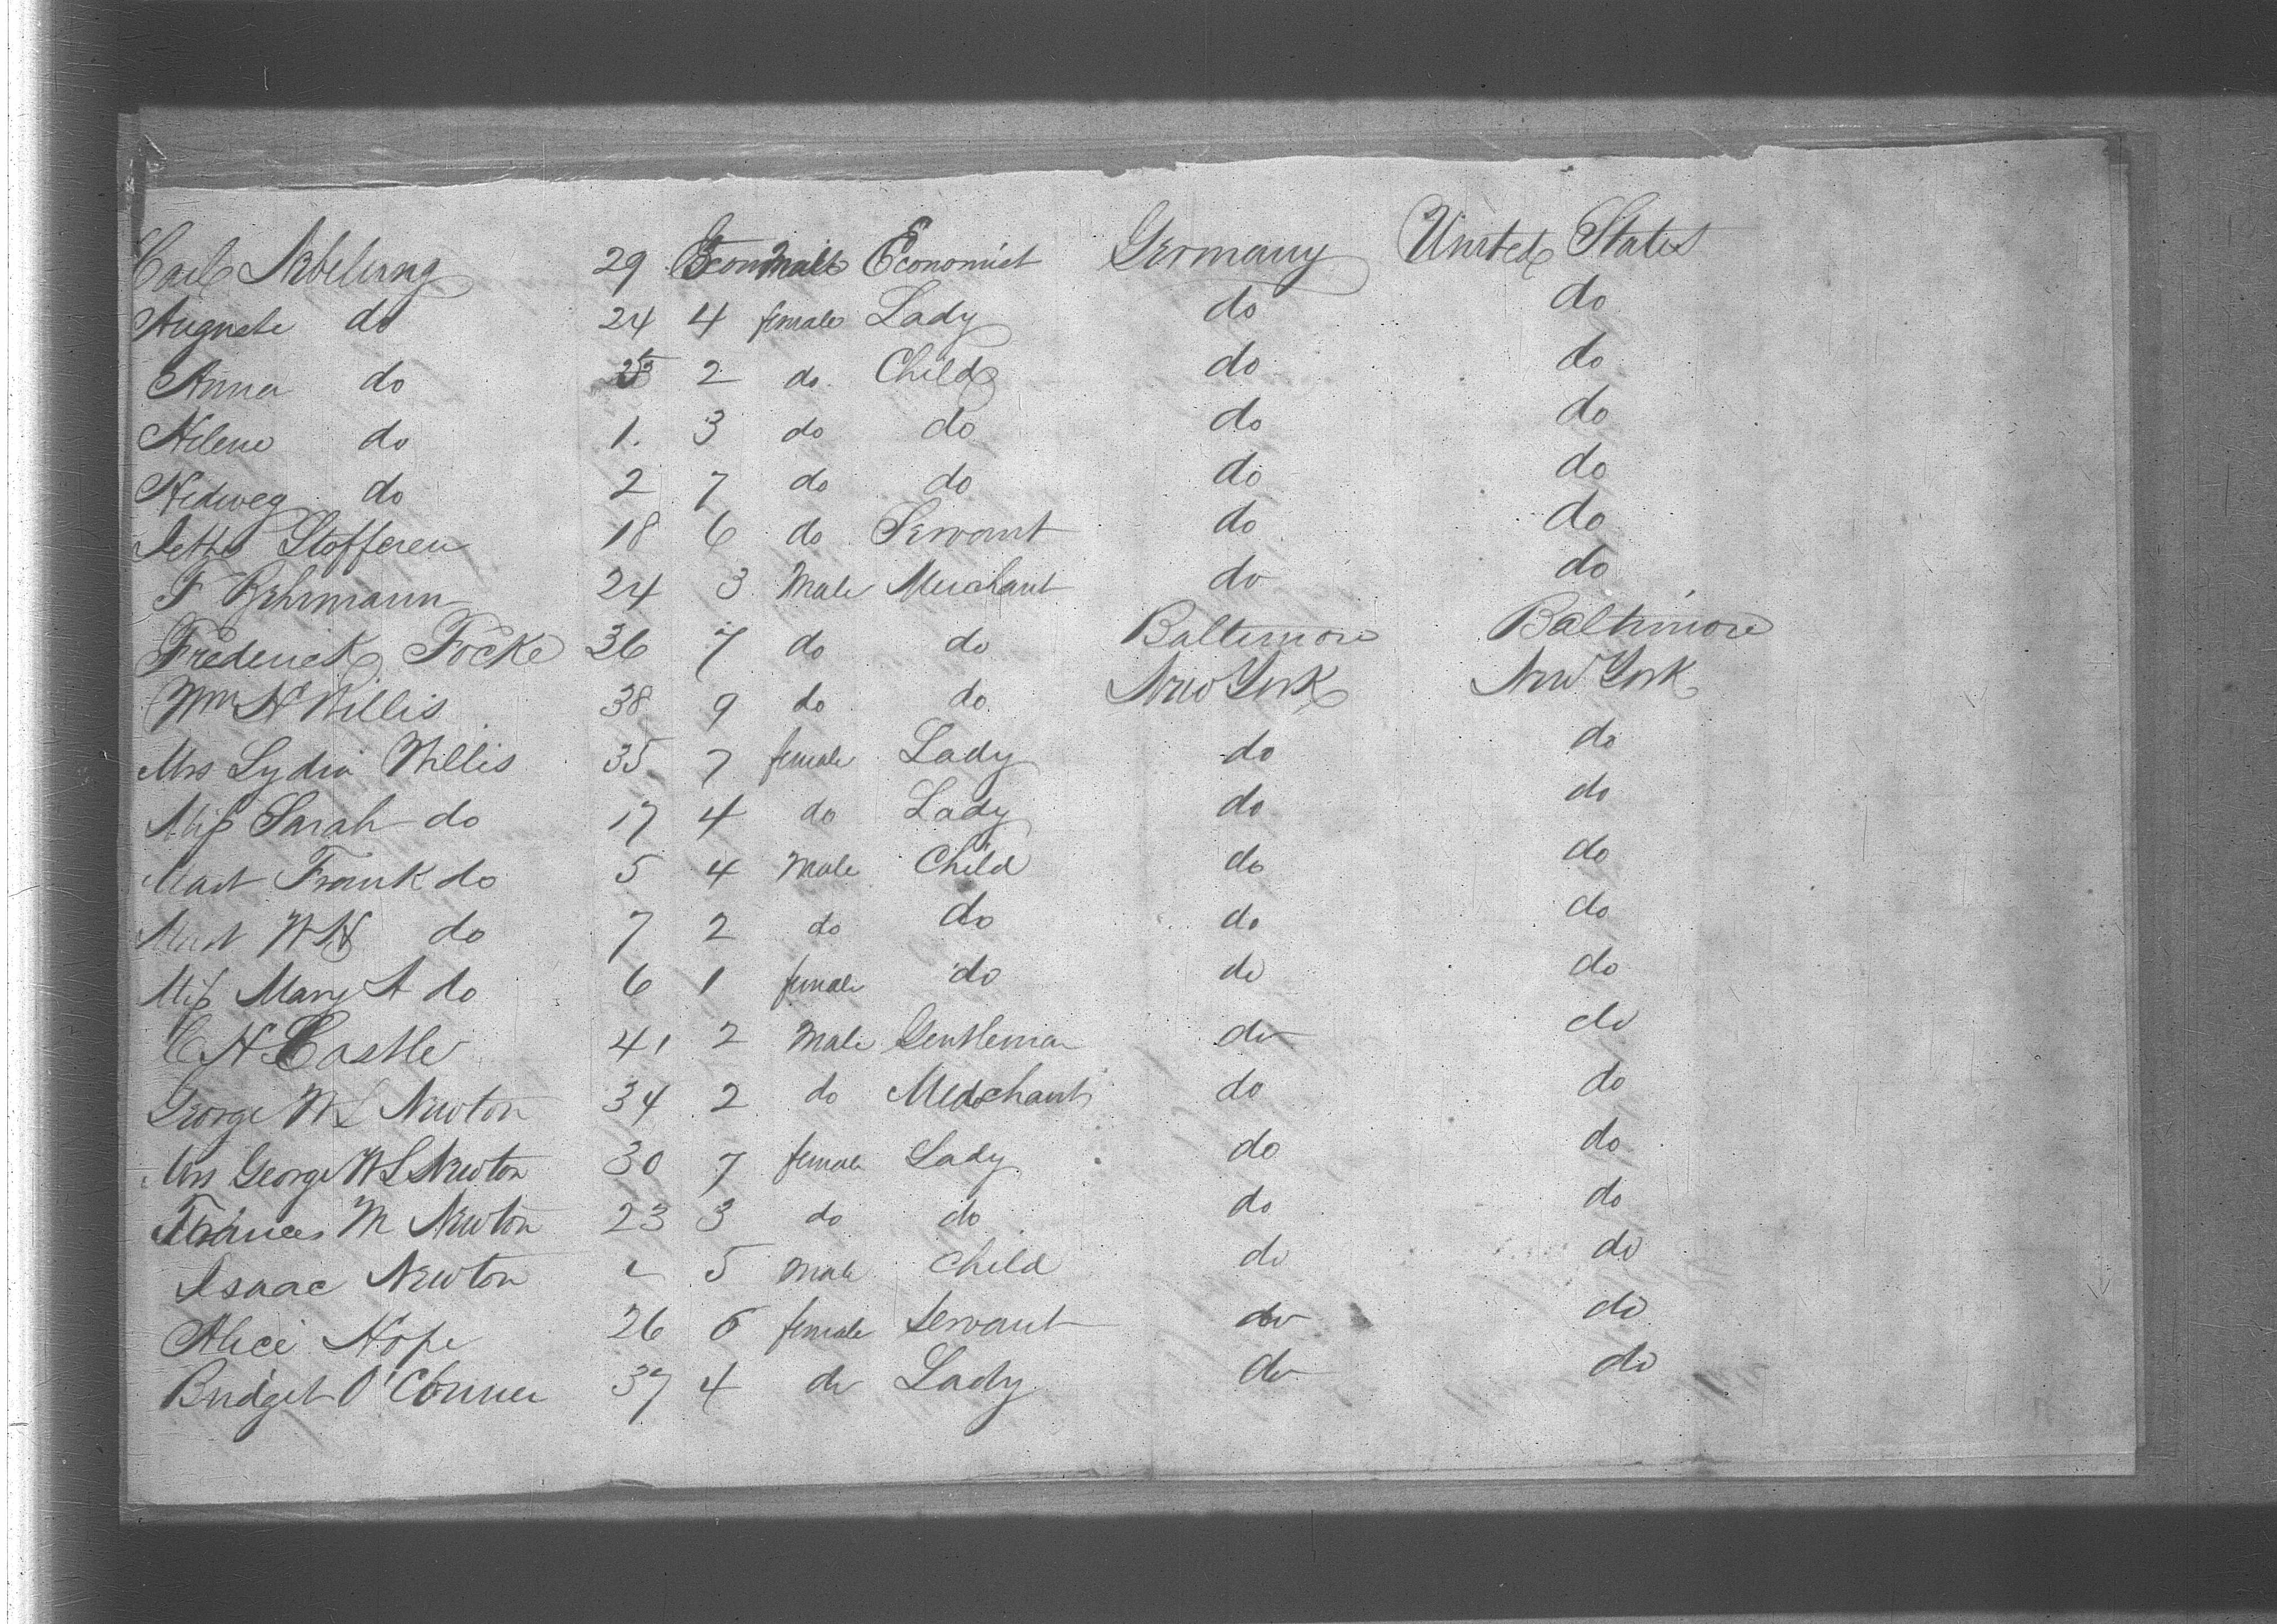 Carl Nebelung 29 male Economist Germany United States
Auguste do 24 4 female Lady do do
Anna do 2 do Child do do
Helene do 1 3 do do do do
Hedweg do 2 7 do do do do
Stofferen 18 6 do Servant do do
F Behrmann 24 3 Male Merchant do do
Frederick Focke 36 7 do do Baltimore Baltimore
Wm H Willis 38 9 do do New York New York
Mrs Lydia Willis 35 7 female Lady do do
Miss Sarah do 17 4 do Lady do do
Mast Frank do 5 4 Male Child do do
Mast W H do 7 2 do do do do
Miss Mary A do 6 1 female do do do
C H Castle 41 2 Male Gentleman do do
George W L Newton 34 2 do Merchant do do
Mrs George W L Newton 30 7 female Lady do do
Frances M Newton 23 3 do do do do
Isaac Newton 5 Male Child do do
Alice Hope 26 6 female Servant do do
Bridget O'Conner 37 4 do Lady do do